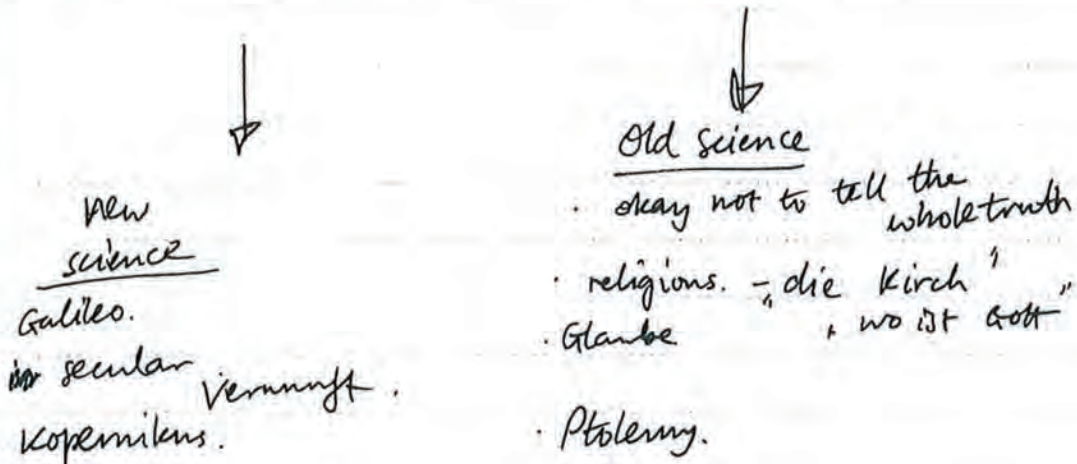 new
science
Galileo.
secular
Vernunft.
Kopernikus.
Old science
· okay not to tell the
whole truth
· religions. - „die Kirch"
· Glaube „wo ist Gott"
· Ptolemy.